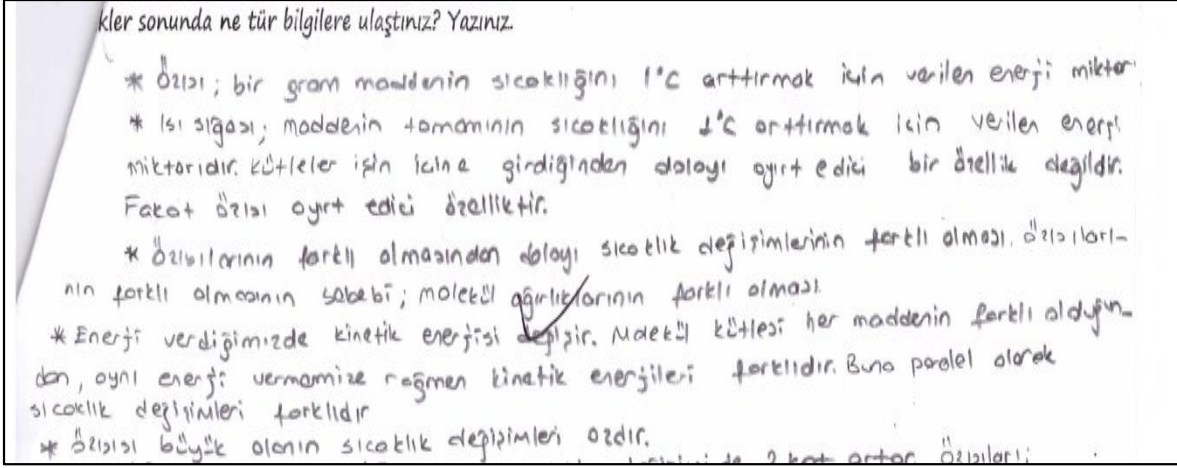 kler sonunda ne tür bilgilere ulaştınız? Yazınız.
* Özısı; bir gram maddenin sıcaklığını 1°C arttırmak için verilen enerji miktar
* Isı sığası; maddenin tamamının sıcaklığını 1°C arttırmak için verilen enerji
miktarıdır. Kütleler işin içine girdiğinden dolayı ayırt edici bir özellik değildir.
Fakat özısı ayırt edici özelliktir.
* Özısılarının farklı olmasından dolayı sıcaklık değişimlerinin farklı olması. Özısıları-
nın farklı olmasının sebebi; molekül ağırlıklarının farklı olması.
* Enerji verdiğimizde kinetik enerjisi değişir. Molekül kütlesi her maddenin farklı olduğun-
dan, aynı enerji vermemize rağmen kinetik enerjileri farklıdır. Buna paralel olarak
sıcaklık değişimleri farklıdır
* Özısısı büyük olanın sıcaklık değişimleri azdır.
2 kat artar. Özısıları;